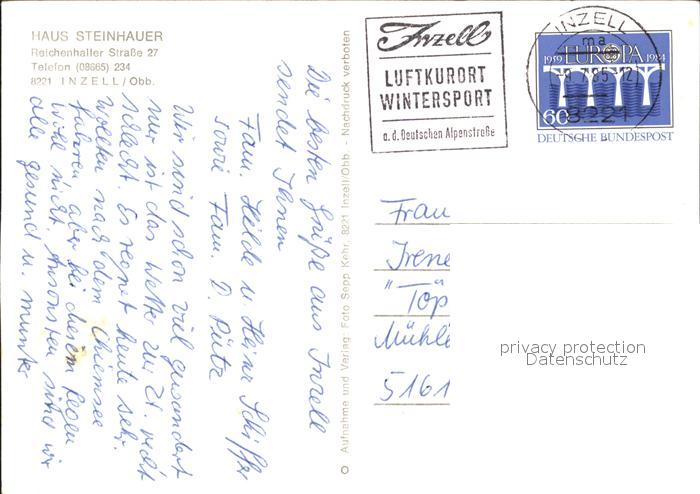 HAUS STEINHAUER
Reichenhaller Straße 27
Telefon (08665) 234
8221 INZELL/Obb.
Die besten Grüße aus Inzell
sendet Ihnen
Fam. Hilde u. Heinz Schiffer
sowie Fam. D. Pütz
Wir sind schon viel gewandert
nur ist das Wetter zur Zt. nicht
schlecht. Es regnet heute sehr.
Wollten nach dem Chiemsee
fahren aber bei diesem Regen
wohl nicht. Ansonsten sind wir
alle gesund u. munter
Aufnahme und Verlag: Foto Sepp Kehr, 8221 Inzell/Obb. - Nachdruck verboten
Inzell
LUFTKURORT
WINTERSPORT
a. d. Deutschen Alpenstraße
INZELL
ma
-9.7.85-12
8221
1959 EUROPA 1984
60
DEUTSCHE BUNDESPOST
Frau
Irene
"Töp
Mühle
5161
privacy protection
Datenschutz